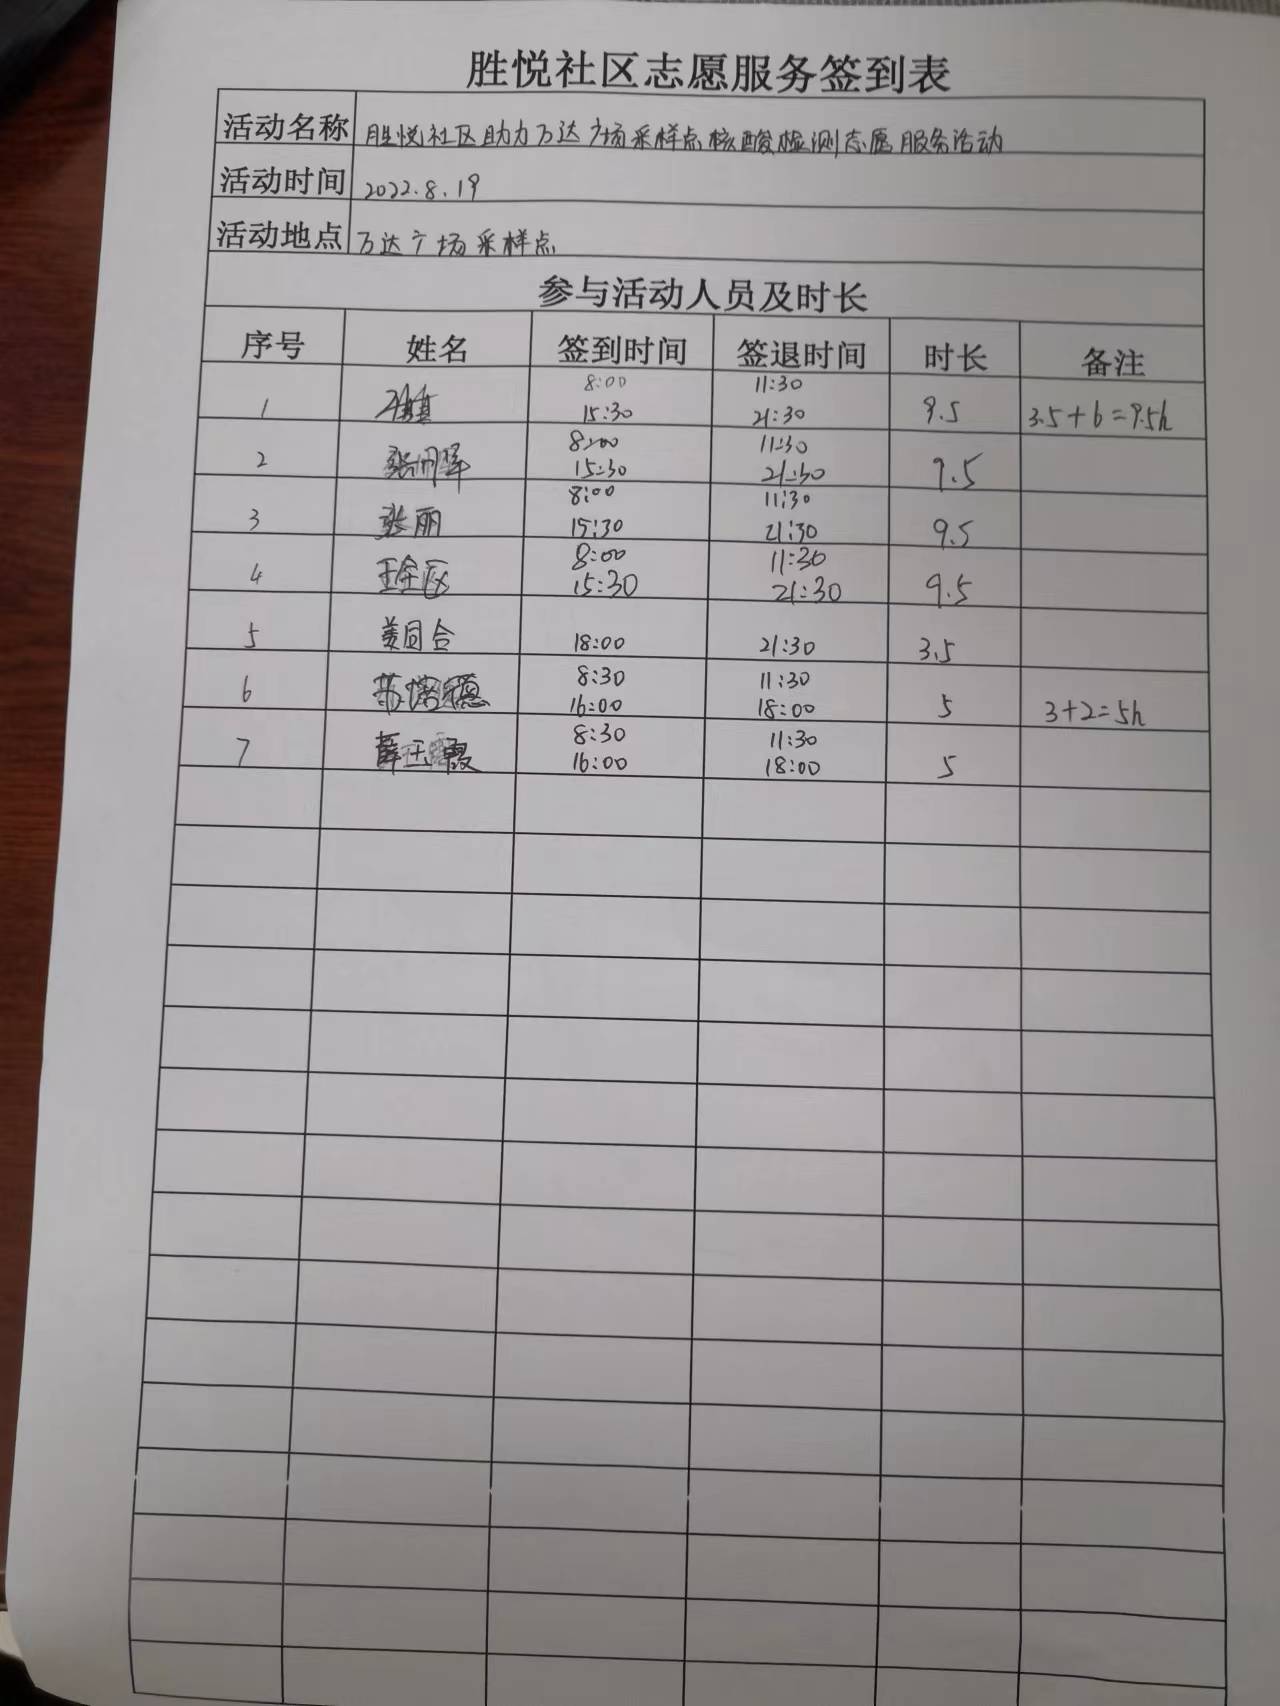 胜悦社区志愿服务签到表
活动名称 胜悦社区助力万达广场采样点核酸检测志愿服务活动
活动时间 2022.8.19
活动地点 万达广场采样点
参与活动人员及时长
序号 姓名 签到时间 签退时间 时长 备注
1 8:00 11:30
15:30 21:30 9.5 3.5+6=9.5h
2 张 8:00 11:30
15:30 21:30 9.5
3 张丽 8:00 11:30
15:30 21:30 9.5
4 王 8:00 11:30
15:30 21:30 9.5
5 18:00 21:30 3.5
6 苏 8:30 11:30
16:00 18:00 5 3+2=5h
7 薛玉霞 8:30 11:30
16:00 18:00 5